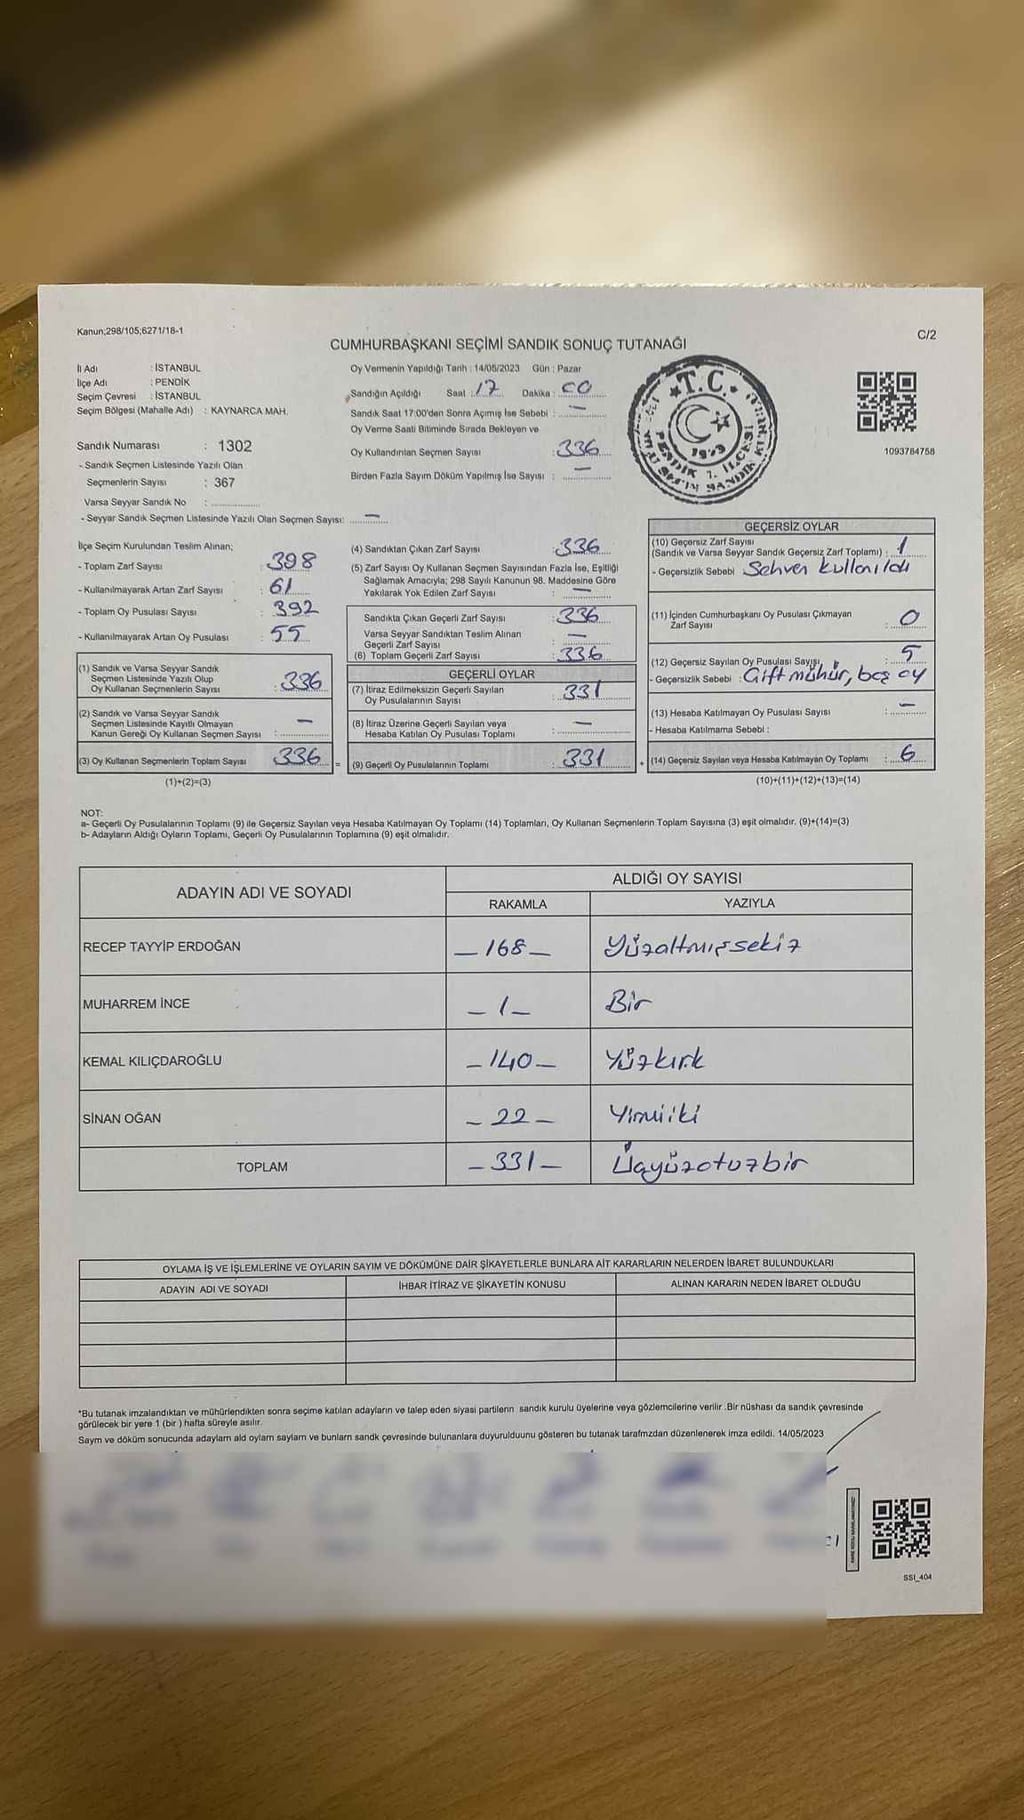 Kanun;298/105;6271/18-1
C/2
CUMHURBAŞKANI SEÇİMİ SANDIK SONUÇ TUTANAĞI
İl Adı : İSTANBUL
İlçe Adı : PENDİK
Seçim Çevresi : İSTANBUL
Seçim Bölgesi (Mahalle Adı) : KAYNARCA MAH.
Sandık Numarası : 1302
- Sandık Seçmen Listesinde Yazılı Olan
Seçmenlerin Sayısı : 367
Varsa Seyyar Sandık No :
- Seyyar Sandık Seçmen Listesinde Yazılı Olan Seçmen Sayısı: —
Oy Vermenin Yapıldığı Tarih : 14/05/2023 Gün : Pazar
Sandığın Açıldığı Saat : 17 Dakika : 00
Sandık Saat 17:00'den Sonra Açımış İse Sebebi : —
Oy Verme Saati Bitiminde Sırada Bekleyen ve
Oy Kullandırılan Seçmen Sayısı : 336
Birden Fazla Sayım Döküm Yapılmış İse Sayısı : —
T.C.
1923
PENDİK 1. İLÇESİ
1093784758
İlçe Seçim Kurulundan Teslim Alınan;
- Toplam Zarf Sayısı : 398
- Kullanılmayarak Artan Zarf Sayısı : 61
- Toplam Oy Pusulası Sayısı : 392
- Kullanılmayarak Artan Oy Pusulası : 55
(1) Sandık ve Varsa Seyyar Sandık
Seçmen Listesinde Yazılı Olup
Oy Kullanan Seçmenlerin Sayısı : 336
(2) Sandık ve Varsa Seyyar Sandık
Seçmen Listesinde Kayıtlı Olmayan
Kanun Gereği Oy Kullanan Seçmen Sayısı : —
(3) Oy Kullanan Seçmenlerin Toplam Sayısı : 336
(1)+(2)=(3)
(4) Sandıktan Çıkan Zarf Sayısı : 336
(5) Zarf Sayısı Oy Kullanan Seçmen Sayısından Fazla İse, Eşitliği
Sağlamak Amacıyla; 298 Sayılı Kanunun 98. Maddesine Göre
Yakılarak Yok Edilen Zarf Sayısı : —
Sandıkta Çıkan Geçerli Zarf Sayısı : 336
Varsa Seyyar Sandıktan Teslim Alınan
Geçerli Zarf Sayısı : —
(6) Toplam Geçerli Zarf Sayısı : 336
GEÇERLİ OYLAR
(7) İtiraz Edilmeksizin Geçerli Sayılan
Oy Pusulalarının Sayısı : 331
(8) İtiraz Üzerine Geçerli Sayılan veya
Hesaba Katılan Oy Pusulası Toplamı : —
= (9) Geçerli Oy Pusulalarının Toplamı : 331
GEÇERSİZ OYLAR
(10) Geçersiz Zarf Sayısı
(Sandık ve Varsa Seyyar Sandık Geçersiz Zarf Toplamı) : 1
- Geçersizlik Sebebi : Sehven kullanıldı
(11) İçinden Cumhurbaşkanı Oy Pusulası Çıkmayan
Zarf Sayısı : 0
(12) Geçersiz Sayılan Oy Pusulası Sayısı : 5
- Geçersizlik Sebebi : Çift mühür, boş oy
(13) Hesaba Katılmayan Oy Pusulası Sayısı : —
- Hesaba Katılmama Sebebi :
+ (14) Geçersiz Sayılan veya Hesaba Katılmayan Oy Toplamı : 6
(10)+(11)+(12)+(13)=(14)
NOT:
a- Geçerli Oy Pusulalarının Toplamı (9) ile Geçersiz Sayılan veya Hesaba Katılmayan Oy Toplamı (14) Toplamları, Oy Kullanan Seçmenlerin Toplam Sayısına (3) eşit olmalıdır. (9)+(14)=(3)
b- Adayların Aldığı Oyların Toplamı, Geçerli Oy Pusulalarının Toplamına (9) eşit olmalıdır.
ADAYIN ADI VE SOYADI ALDIĞI OY SAYISI
RAKAMLA YAZIYLA
RECEP TAYYİP ERDOĞAN — 168 — Yüzaltmışsekiz
MUHARREM İNCE — 1 — Bir
KEMAL KILIÇDAROĞLU — 140 — Yüzkırk
SİNAN OĞAN — 22 — Yirmiiki
TOPLAM — 331 — Üçyüzotuzbir
OYLAMA İŞ VE İŞLEMLERİNE VE OYLARIN SAYIM VE DÖKÜMÜNE DAİR ŞİKAYETLERLE BUNLARA AİT KARARLARIN NELERDEN İBARET BULUNDUKLARI
ADAYIN ADI VE SOYADI İHBAR İTİRAZ VE ŞİKAYETİN KONUSU ALINAN KARARIN NEDEN İBARET OLDUĞU
*Bu tutanak imzalandıktan ve mühürlendikten sonra seçime katılan adayların ve talep eden siyasi partilerin sandık kurulu üyelerine veya gözlemcilerine verilir .Bir nüshası da sandık çevresinde
görülecek bir yere 1 (bir ) hafta süreyle asılır.
Saym ve döküm sonucunda adaylarn ald oylarn saylarn ve bunlarn sandk çevresinde bulunanlara duyurulduunu gösteren bu tutanak tarafmzdan düzenlenerek imza edildi. 14/05/2023
SSI_404